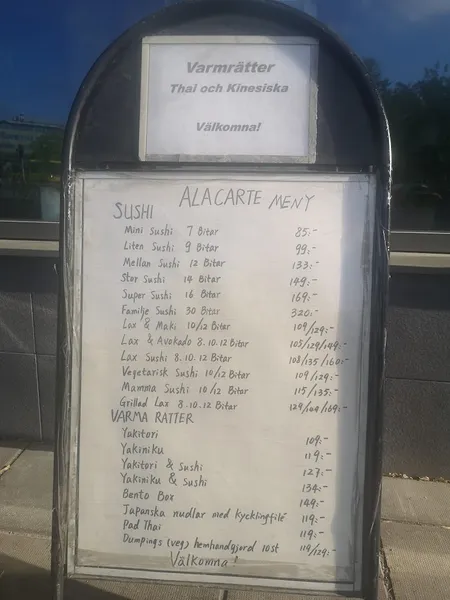 Varmrätter
Thai och Kinesiska
Välkomna!
ALACARTE MENY
SUSHI
Mini Sushi 7 Bitar 85:-
Liten Sushi 9 Bitar 99:-
Mellan Sushi 12 Bitar 133:-
Stor Sushi 14 Bitar 149:-
Super Sushi 16 Bitar 169:-
Familje Sushi 30 Bitar 320:-
Lax & Maki 10/12 Bitar 109/129:-
Lax & Avokado 8.10.12 Bitar 105/129/149:-
Lax Sushi 8.10.12 Bitar 108/135/160:-
Vegetarisk Sushi 10/12 Bitar 109/129:-
Mamma Sushi 10/12 Bitar 115/135:-
Grillad Lax 8.10.12 Bitar 129/149/169:-
VARMA RATTER
Yakitori 109:-
Yakiniku 119:-
Yakitori & Sushi 127:-
Yakiniku & Sushi 134:-
Bento Box 149:-
Japanska nudlar med kycklingfilé 119:-
Pad Thai 119:-
Dumpings (veg) hemhandgjord 10st 119/129:-
Välkomna!